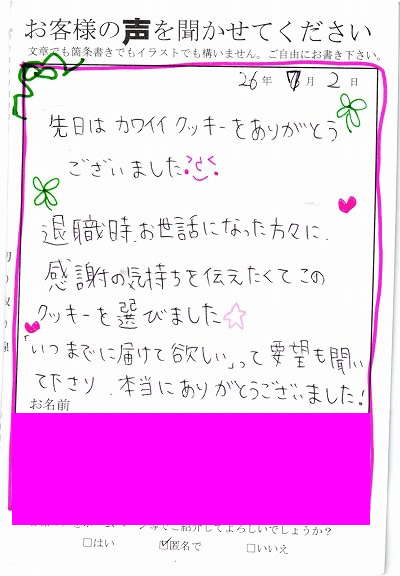 お客様の声を聞かせてください
文章でも箇条書きでもイラストでも構いません。ご自由にお書き下さい。
26年 月 2 日
先日は カワイイ クッキーをありがとう
ございました
退職時、お世話になった方々に、
感謝の気持ちを伝えたくてこの
クッキーを選びました☆
「いつまでに届けて欲しい」って要望も聞い
て下さり、本当にありがとうございました!
お名前
ご紹介してよろしいでしょうか?
□はい ☑匿名で □いいえ